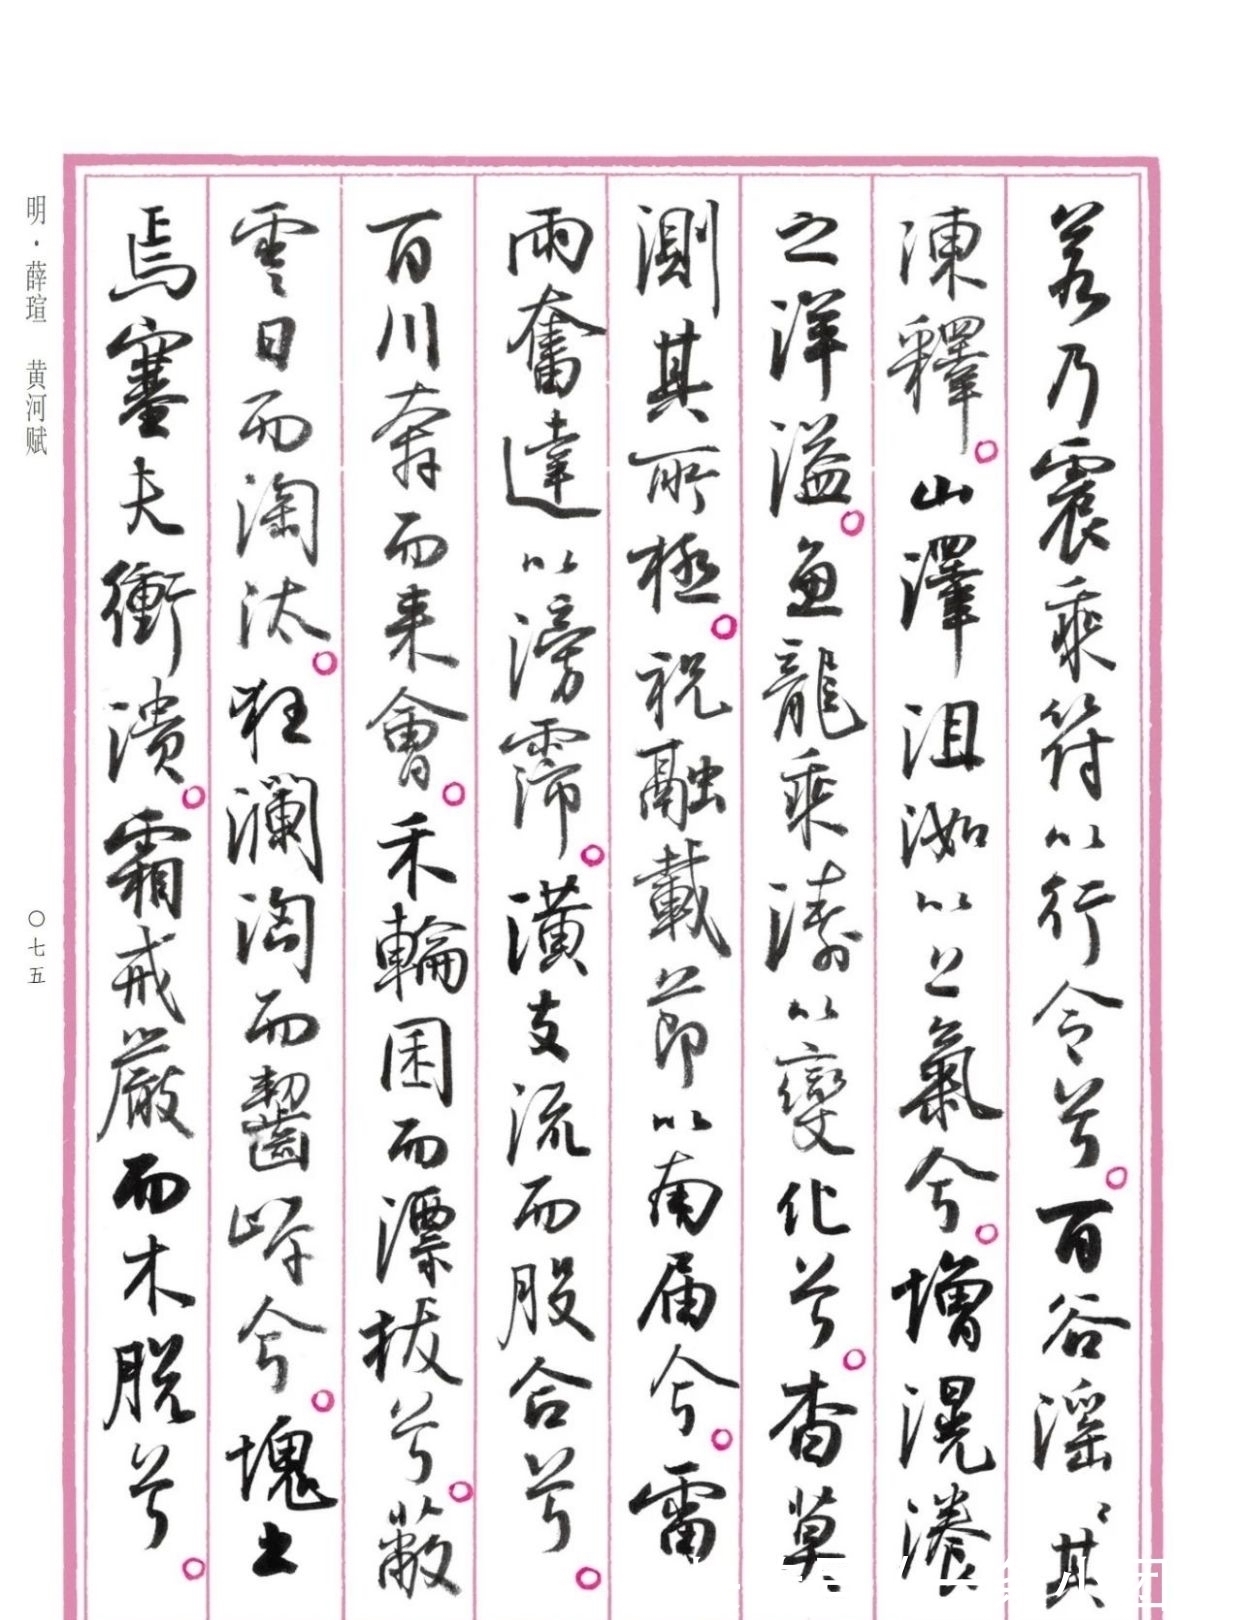 若乃震乘符以行令兮。百谷滛〻其
凍釋。山澤沮洳以上氣兮。增滉瀁
之洋溢。魚龍乘濤以變化兮。杳莫
測其所極。祝融載節以南届兮。雷
雨奮達以滂霈。潢支流而股合兮。
百川奔而来會。禾輪囷而漂拔兮。蔽
雲日而淘汰。狂瀾淘而齧岸兮。塊土
焉塞夫衝潰。霜戒嚴而木脱兮。
明·薛瑄 黄河赋
〇七五